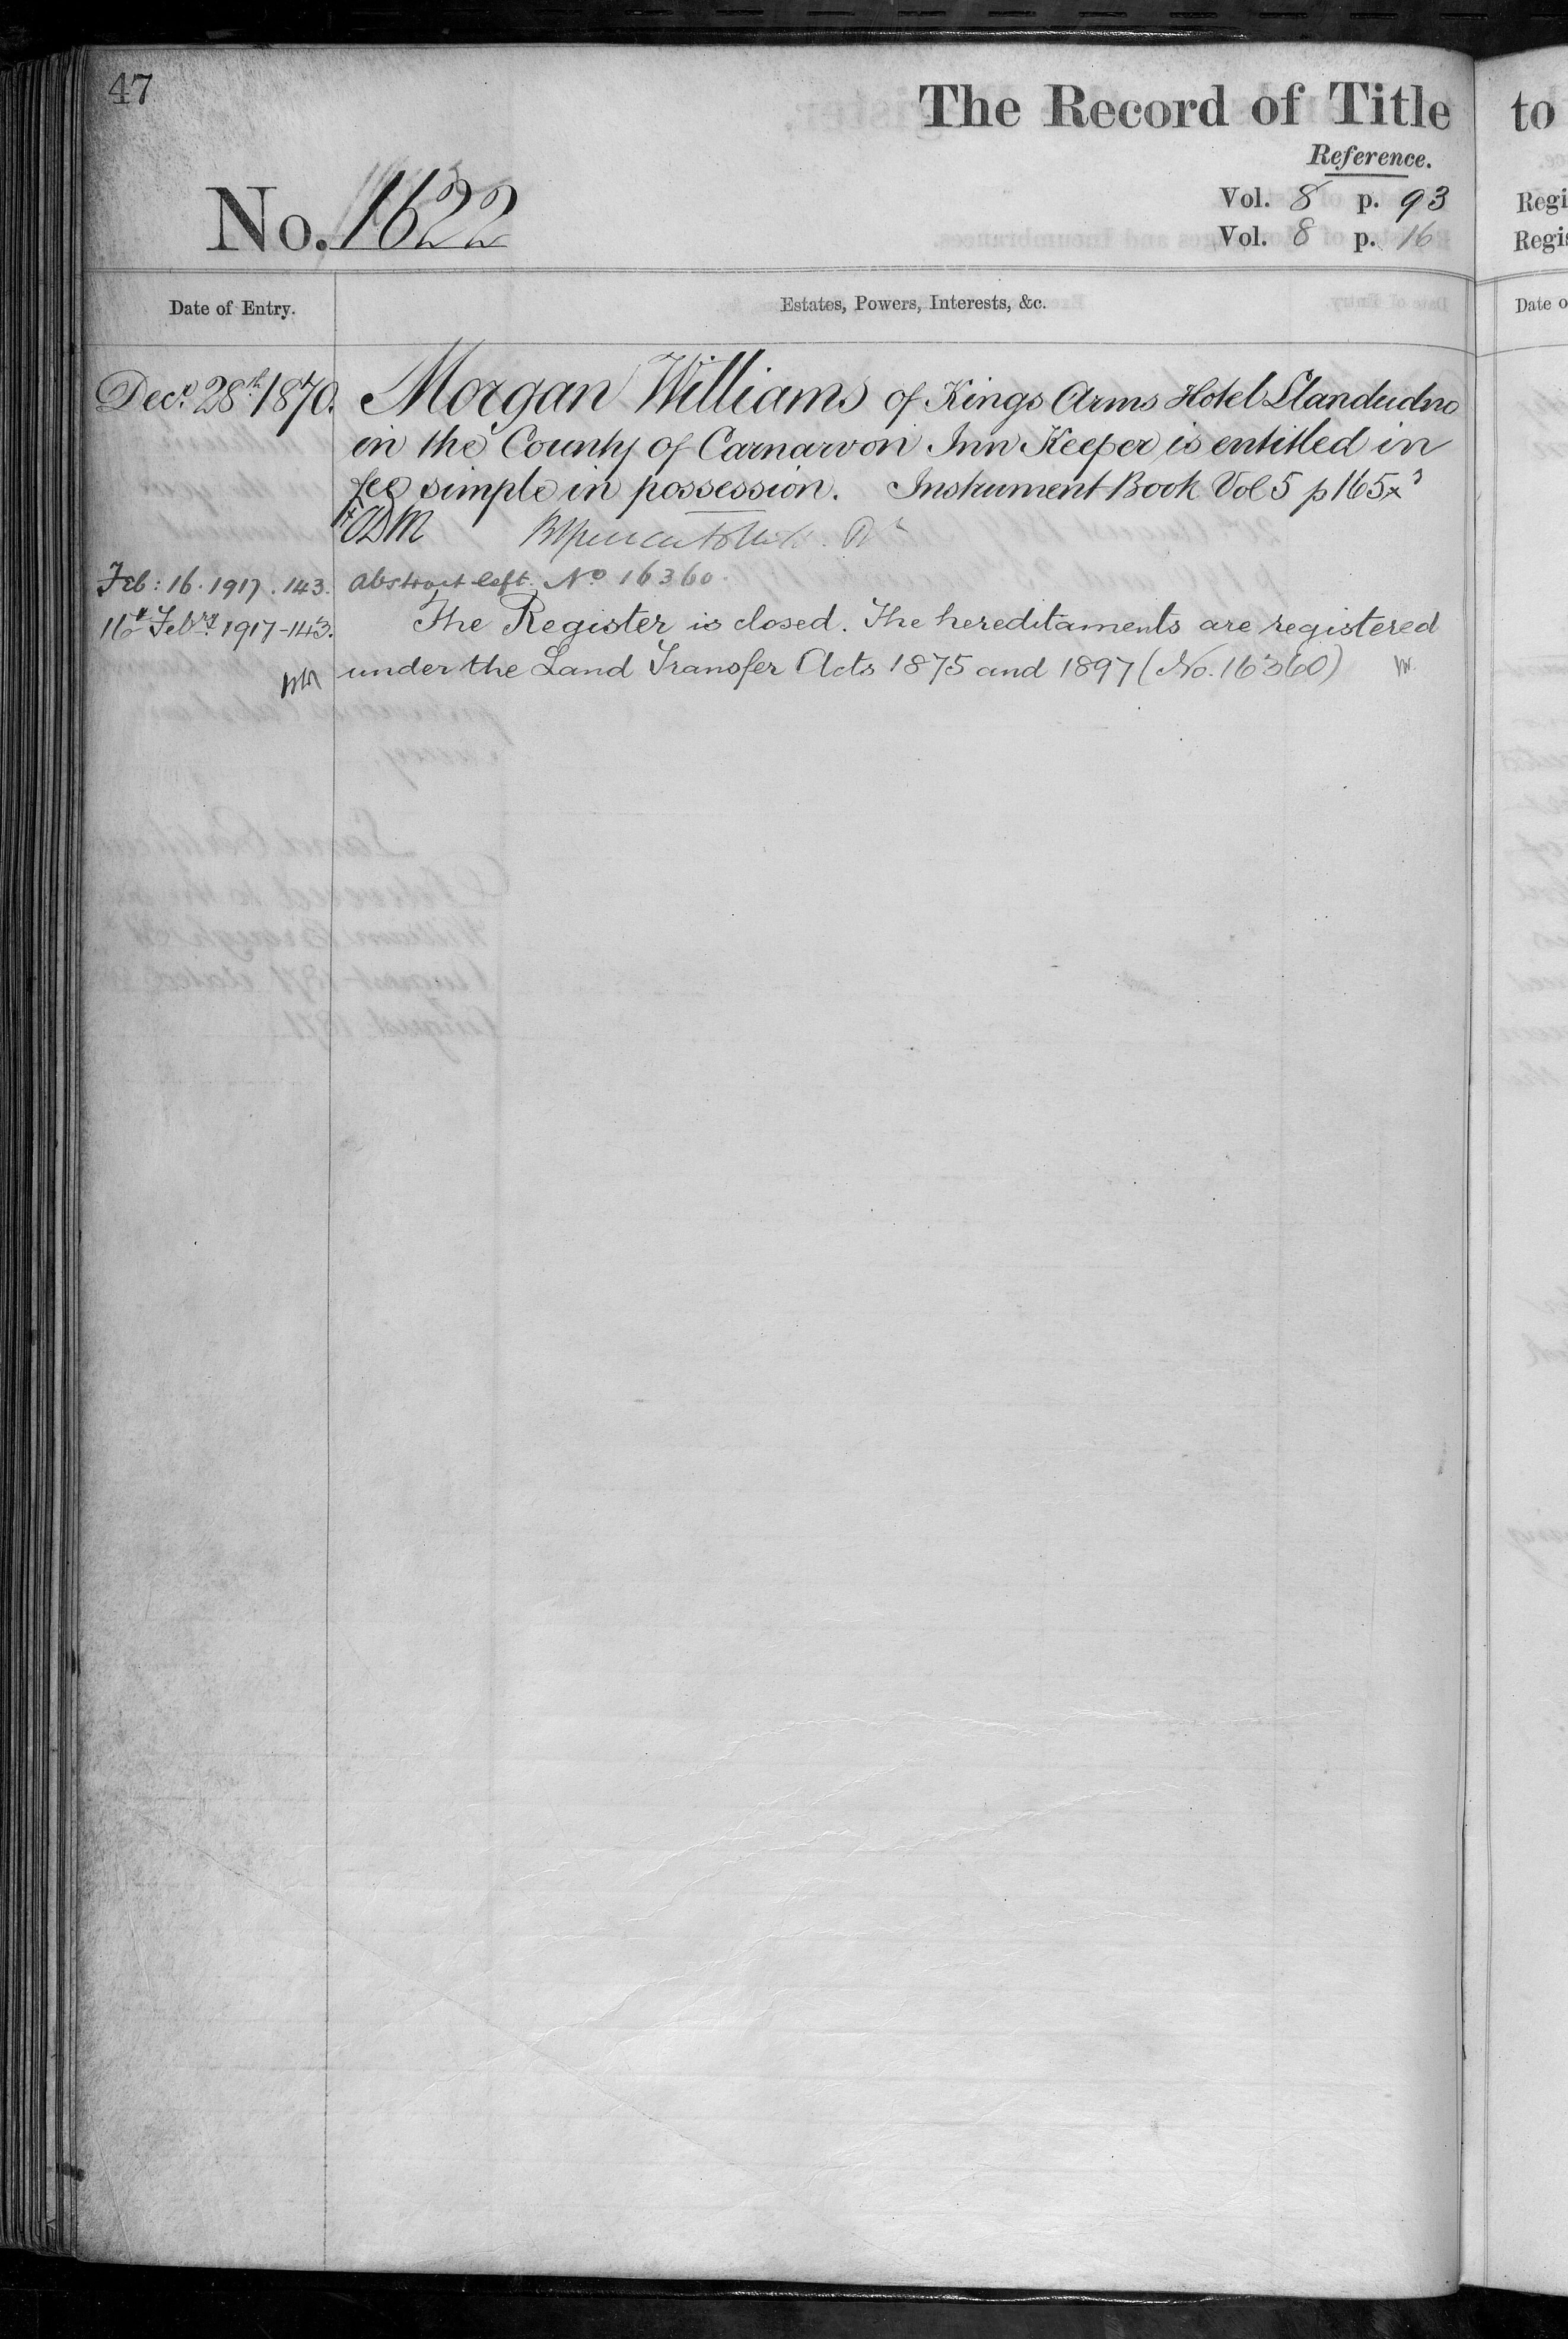 47
The Record of Title
to
Reference.
No. 1622
Vol. 8 p. 93
Vol. 8 p. 16
Regi
Regis
Date of Entry.
Estates, Powers, Interests, &c.
Date o
Decr. 28th 1870. Morgan Williams of Kings Arms Hotel Llandudno
in the County of Carnarvon Inn Keeper is entitled in
fee simple in possession. Instrument Book Vol 5 p 165
Feb: 16. 1917. 143. Abstract left. No 16360.
16th Febry 1917-143. The Register is closed. The hereditaments are registered
under the Land Transfer Acts 1875 and 1897 (No. 16360)